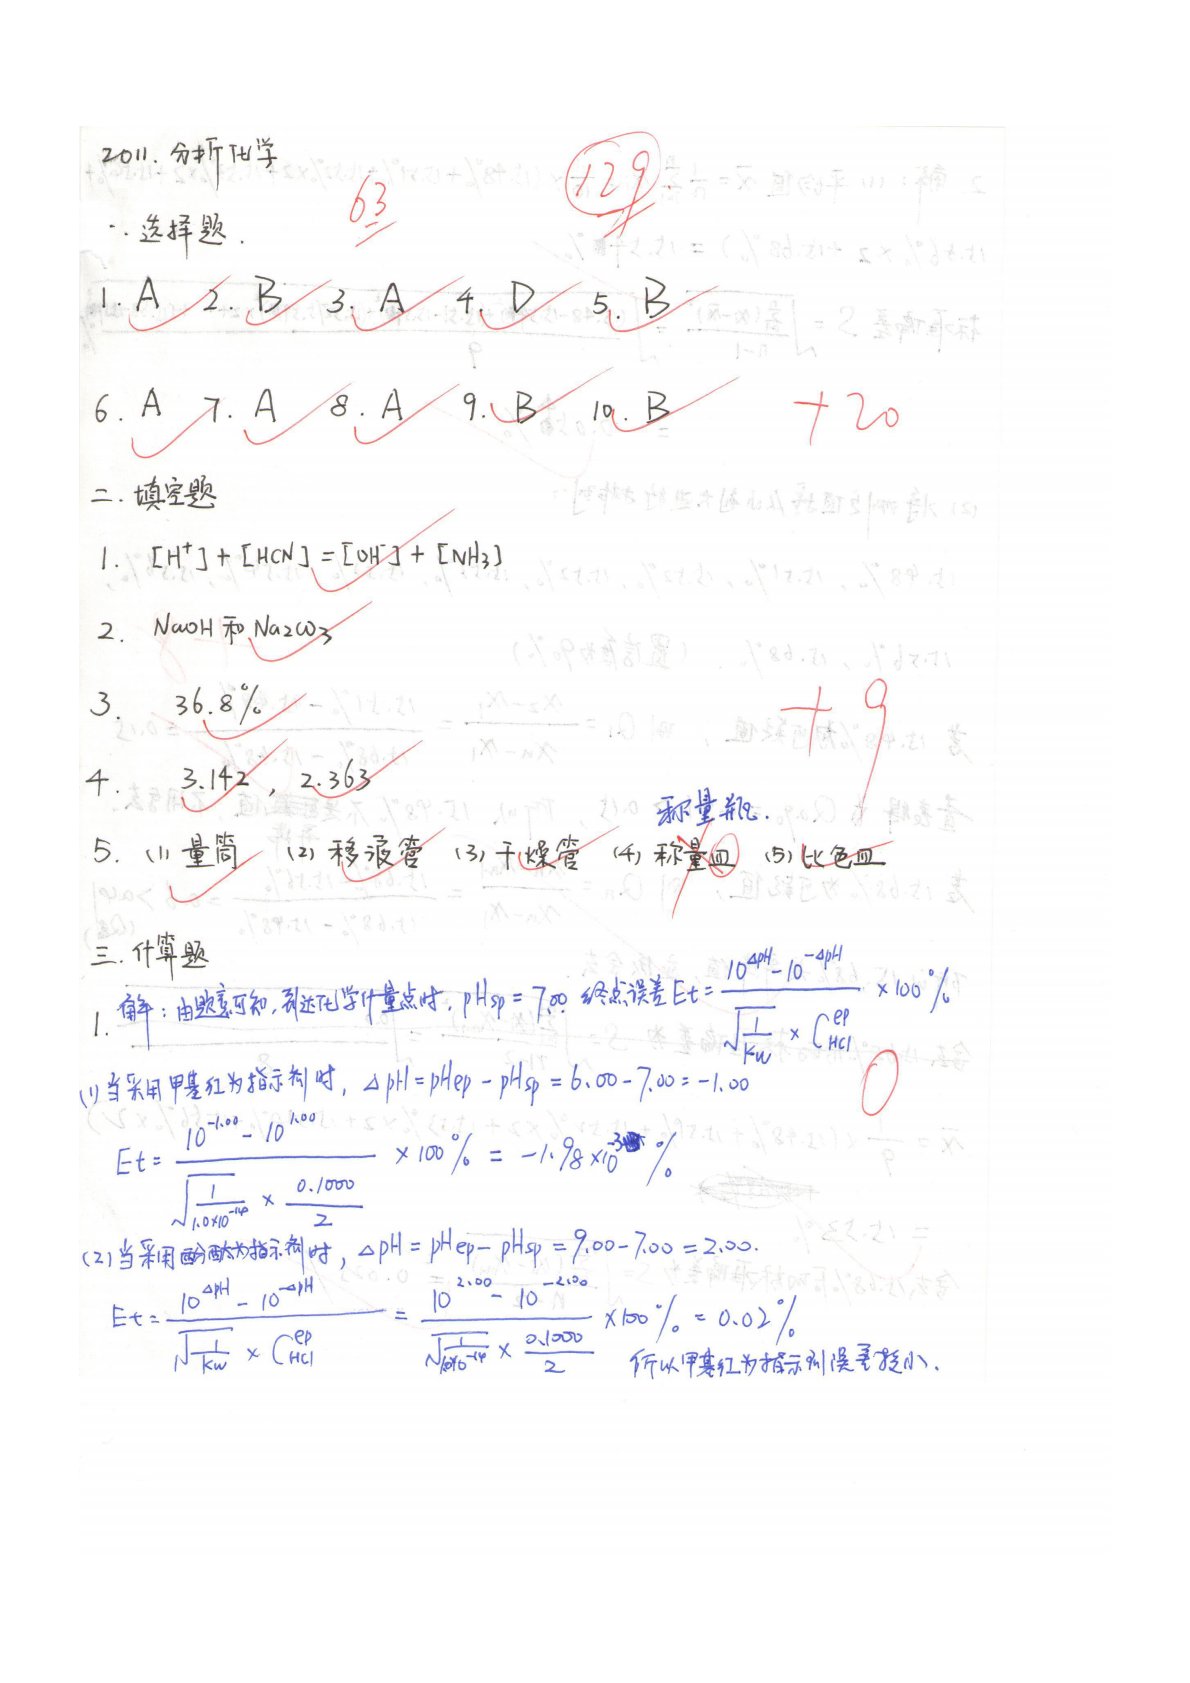 2011. 分析化学
63
+29
一. 选择题.
1. A 2. B 3. A 4. D 5. B
6. A 7. A 8. A 9. B 10. B +20
二. 填空题
1. [H⁺] + [HCN] = [OH⁻] + [NH₃]
2. NaOH 和 Na₂CO₃
3. 36.8%
+9
4. 3.142 , 2.363
称量瓶.
5. (1) 量筒 (2) 移液管 (3) 干燥管 (4) 称量皿 (5) 比色皿
三. 计算题
1. 解: 由题意可知, 到达化学计量点时, pHsp = 7.00 终点误差 Et = (10^ΔpH - 10^-ΔpH) / (√(1/Kw) × C_HCl^ep) × 100%
0
(1) 当采用甲基红为指示剂时, ΔpH = pHep - pHsp = 6.00 - 7.00 = -1.00
Et = (10^-1.00 - 10^1.00) / (√(1/1.0×10^-14) × 0.1000/2) × 100% = -1.98×10^-3 %
(2) 当采用酚酞为指示剂时, ΔpH = pHep - pHsp = 9.00 - 7.00 = 2.00.
Et = (10^ΔpH - 10^-ΔpH) / (√(1/Kw) × C_HCl^ep) = (10^2.00 - 10^-2.00) / (√(1/1.0×10^-14) × 0.1000/2) × 100% = 0.02%
所以甲基红为指示剂误差较小.